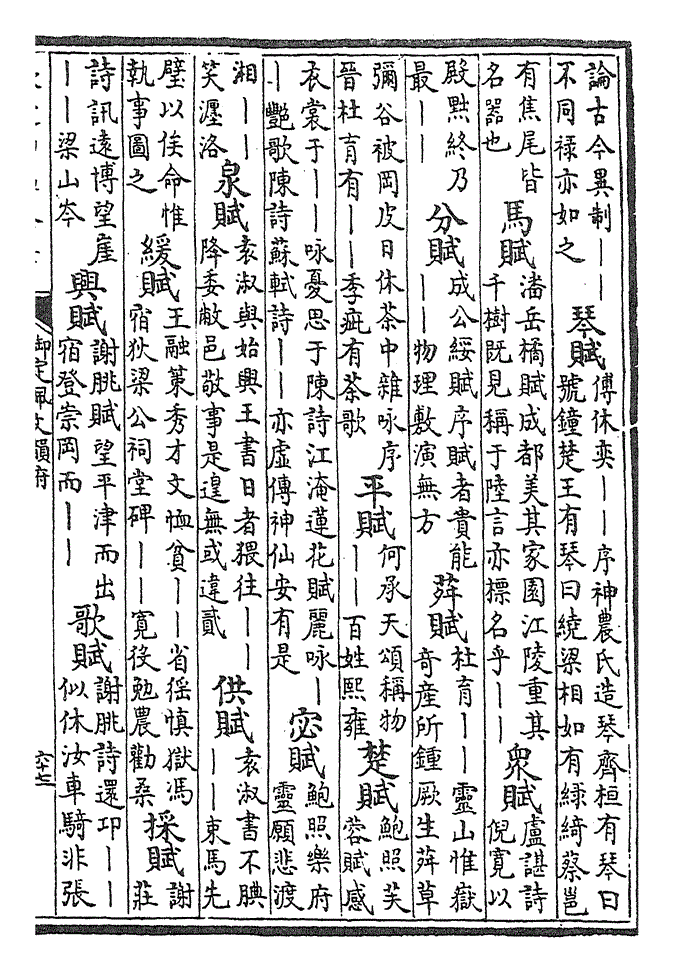 論古今異制｜｜
不同禄亦如之
琴賦
傅休奕｜｜序神農氏造琴齊桓有琴曰
號鐘楚王有琴曰繞梁相如有緑綺蔡邕
有焦尾皆
名器也
馬賦
潘岳橘賦成都美其家園江陵重其
千樹既見稱于陸言亦摽名乎｜｜
衆賦
盧諶詩
倪寛以
殿黙終乃
最｜｜
分賦
成公綏賦序賦者貴能
｜｜物理敷演無方
荈賦
杜育｜｜靈山惟嶽
奇産所鍾厥生荈草
彌谷被岡皮日休茶中雜咏序
晉杜育有｜｜季疵有茶歌
平賦
何承天頌稱物
｜｜百姓熙雍
楚賦
鮑照芙
蓉賦感
衣裳于｜｜咏憂思于陳詩江淹蓮花賦麗咏｜
｜艷歌陳詩蘇軾詩｜｜亦虛傳神仙安有是
宓賦
鮑照樂府
靈願悲渡
湘｜｜
笑瀍洛
泉賦
袁淑與始興王書日者猥往｜｜
降委敝邑敬事是遑無或違貳
供賦
袁淑書不腆
｜｜束馬先
璧以俟命惟
執事圖之
緩賦
王融策秀才文恤貧｜｜省徭慎獄馮
宿狄梁公祠堂碑｜｜寛役勉農勸桑
採賦
謝
莊
詩訊遠博望崖
｜｜梁山岑
興賦
謝朓賦望平津而出
宿登崇岡而｜｜
歌賦
謝朓詩還卭｜｜
似休汝車騎非張
御定佩文韻府
六十七